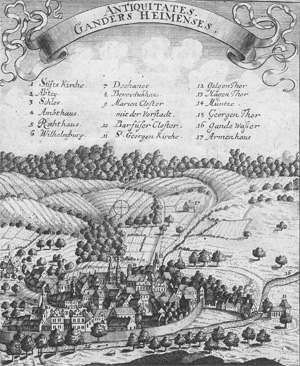 ANTIQUITATES
GANDERS HEIMENSES.
1 Stifts Kirche
2 Abtey
3 Schlos
4 Ambthaus
5 Rahthaus
6 Wilhelmburg
7 Dechaney
8
9 Marien Closter
mit der Vorstadt
10 Barfuser Closter.
11 St. Georgen Kirche
12 Galgen Thor
13 Hagen Thor
14 Müntze
15 Georgen Thor
16 Gande Wasser
17 Armenhaus